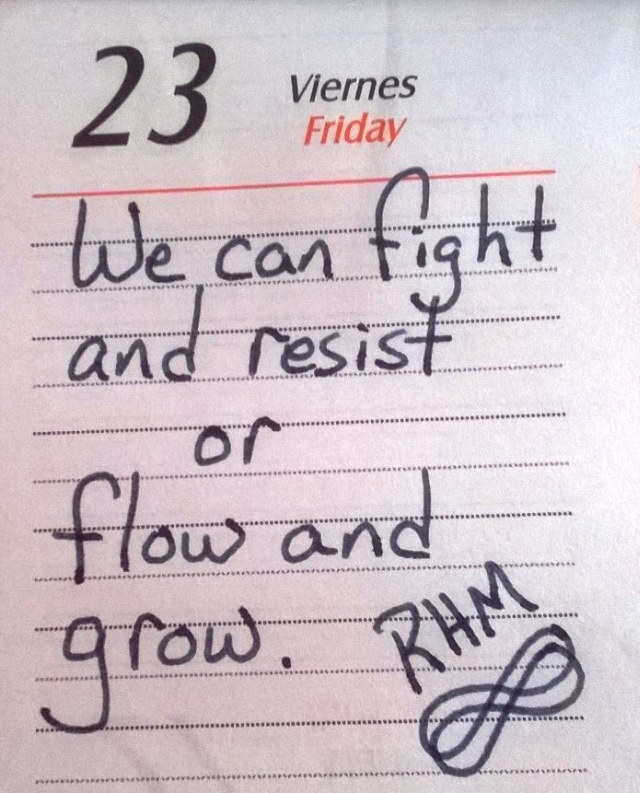 23 Viernes
Friday
We can fight
and resist
or
flow and
grow. RHM